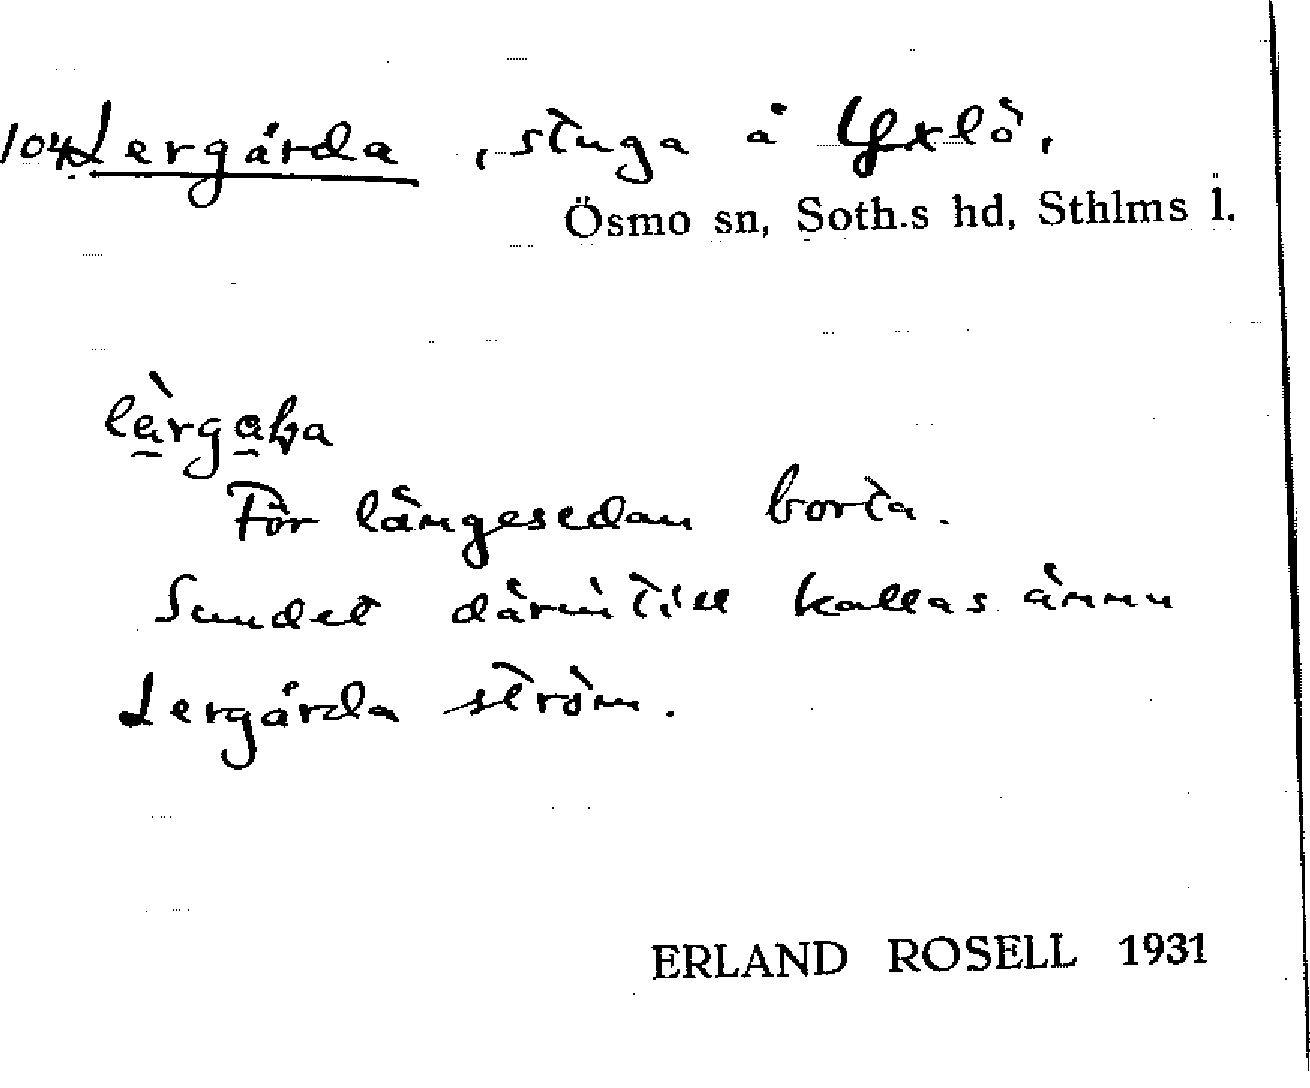 104 Lergårda, stuga å Yxlö,
Ösmo sn, Soth.s hd, Sthlms l.
För längesedan borta.
Sundet därintill kallas ännu
Lergårda ström.
ERLAND ROSELL 1931